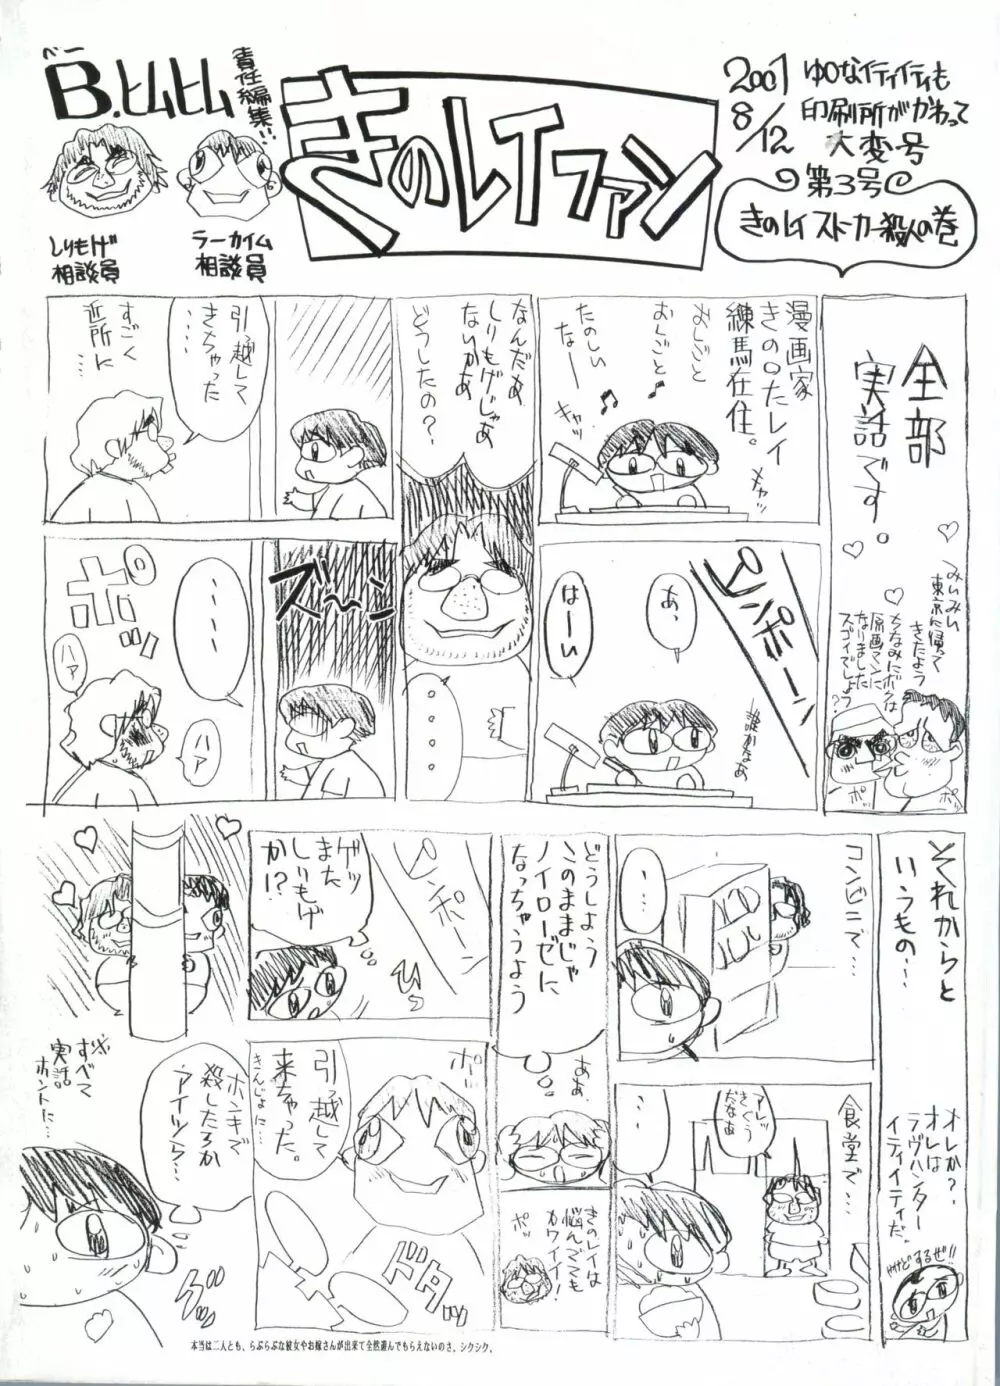 べー
B.ヒムヒム
責任編集!!
しりもげ
相談員
ラーカイム
相談員
きのレイファン
2001
8/12
ゆりなイティイティも
印刷所がかわって
大変号
第3号
きのレイ ストーカー殺人の巻
全部
実話です。
みぃみぃ
東京に帰って
きたよう
ちなみにボクは
原画マンに
なりました
スゴイでしょう?
ポッ
ポッ
漫画家
きのたレイ
練馬在住。
おしごと
おしごと♪
たのしい
なー
キャッ
メャッ
ピンポーン
あ、
はーい
誰かなぁ
なんだぁ
しりもげじゃぁ
ないかぁ
どうしたの?
・・・・
引っ越して
きちゃった
・・・
すごく
近所に
・・・
ズーン
・・・・
ポッ
ハァ
ハァ
それからと
いうもの…
オレか?
オレは
ラヴハンター
イティイティだ。
やけどするぜ!!
コンビニで…
・・・
食堂で…
アレッ
きぐう
だなあ
・・・
どうしよう
このままじゃ
ノイローゼに
なっちゃうよう
ああ
きのレイは
悩んでても
カワイイ!
ポッ
ピンポーン
ゲッ
また
しりもげ
か!?
ひょい
引っ越して
来ちゃった。
きんじょに…
ポッ
ドタッ
ホンキで
殺したろか
アイツら…
グッ
※すべて
実話。
ホントに…
本当は二人とも、らぶらぶな彼女やお嫁さんが出来て全然遊んでもらえないのさ。シクシク。